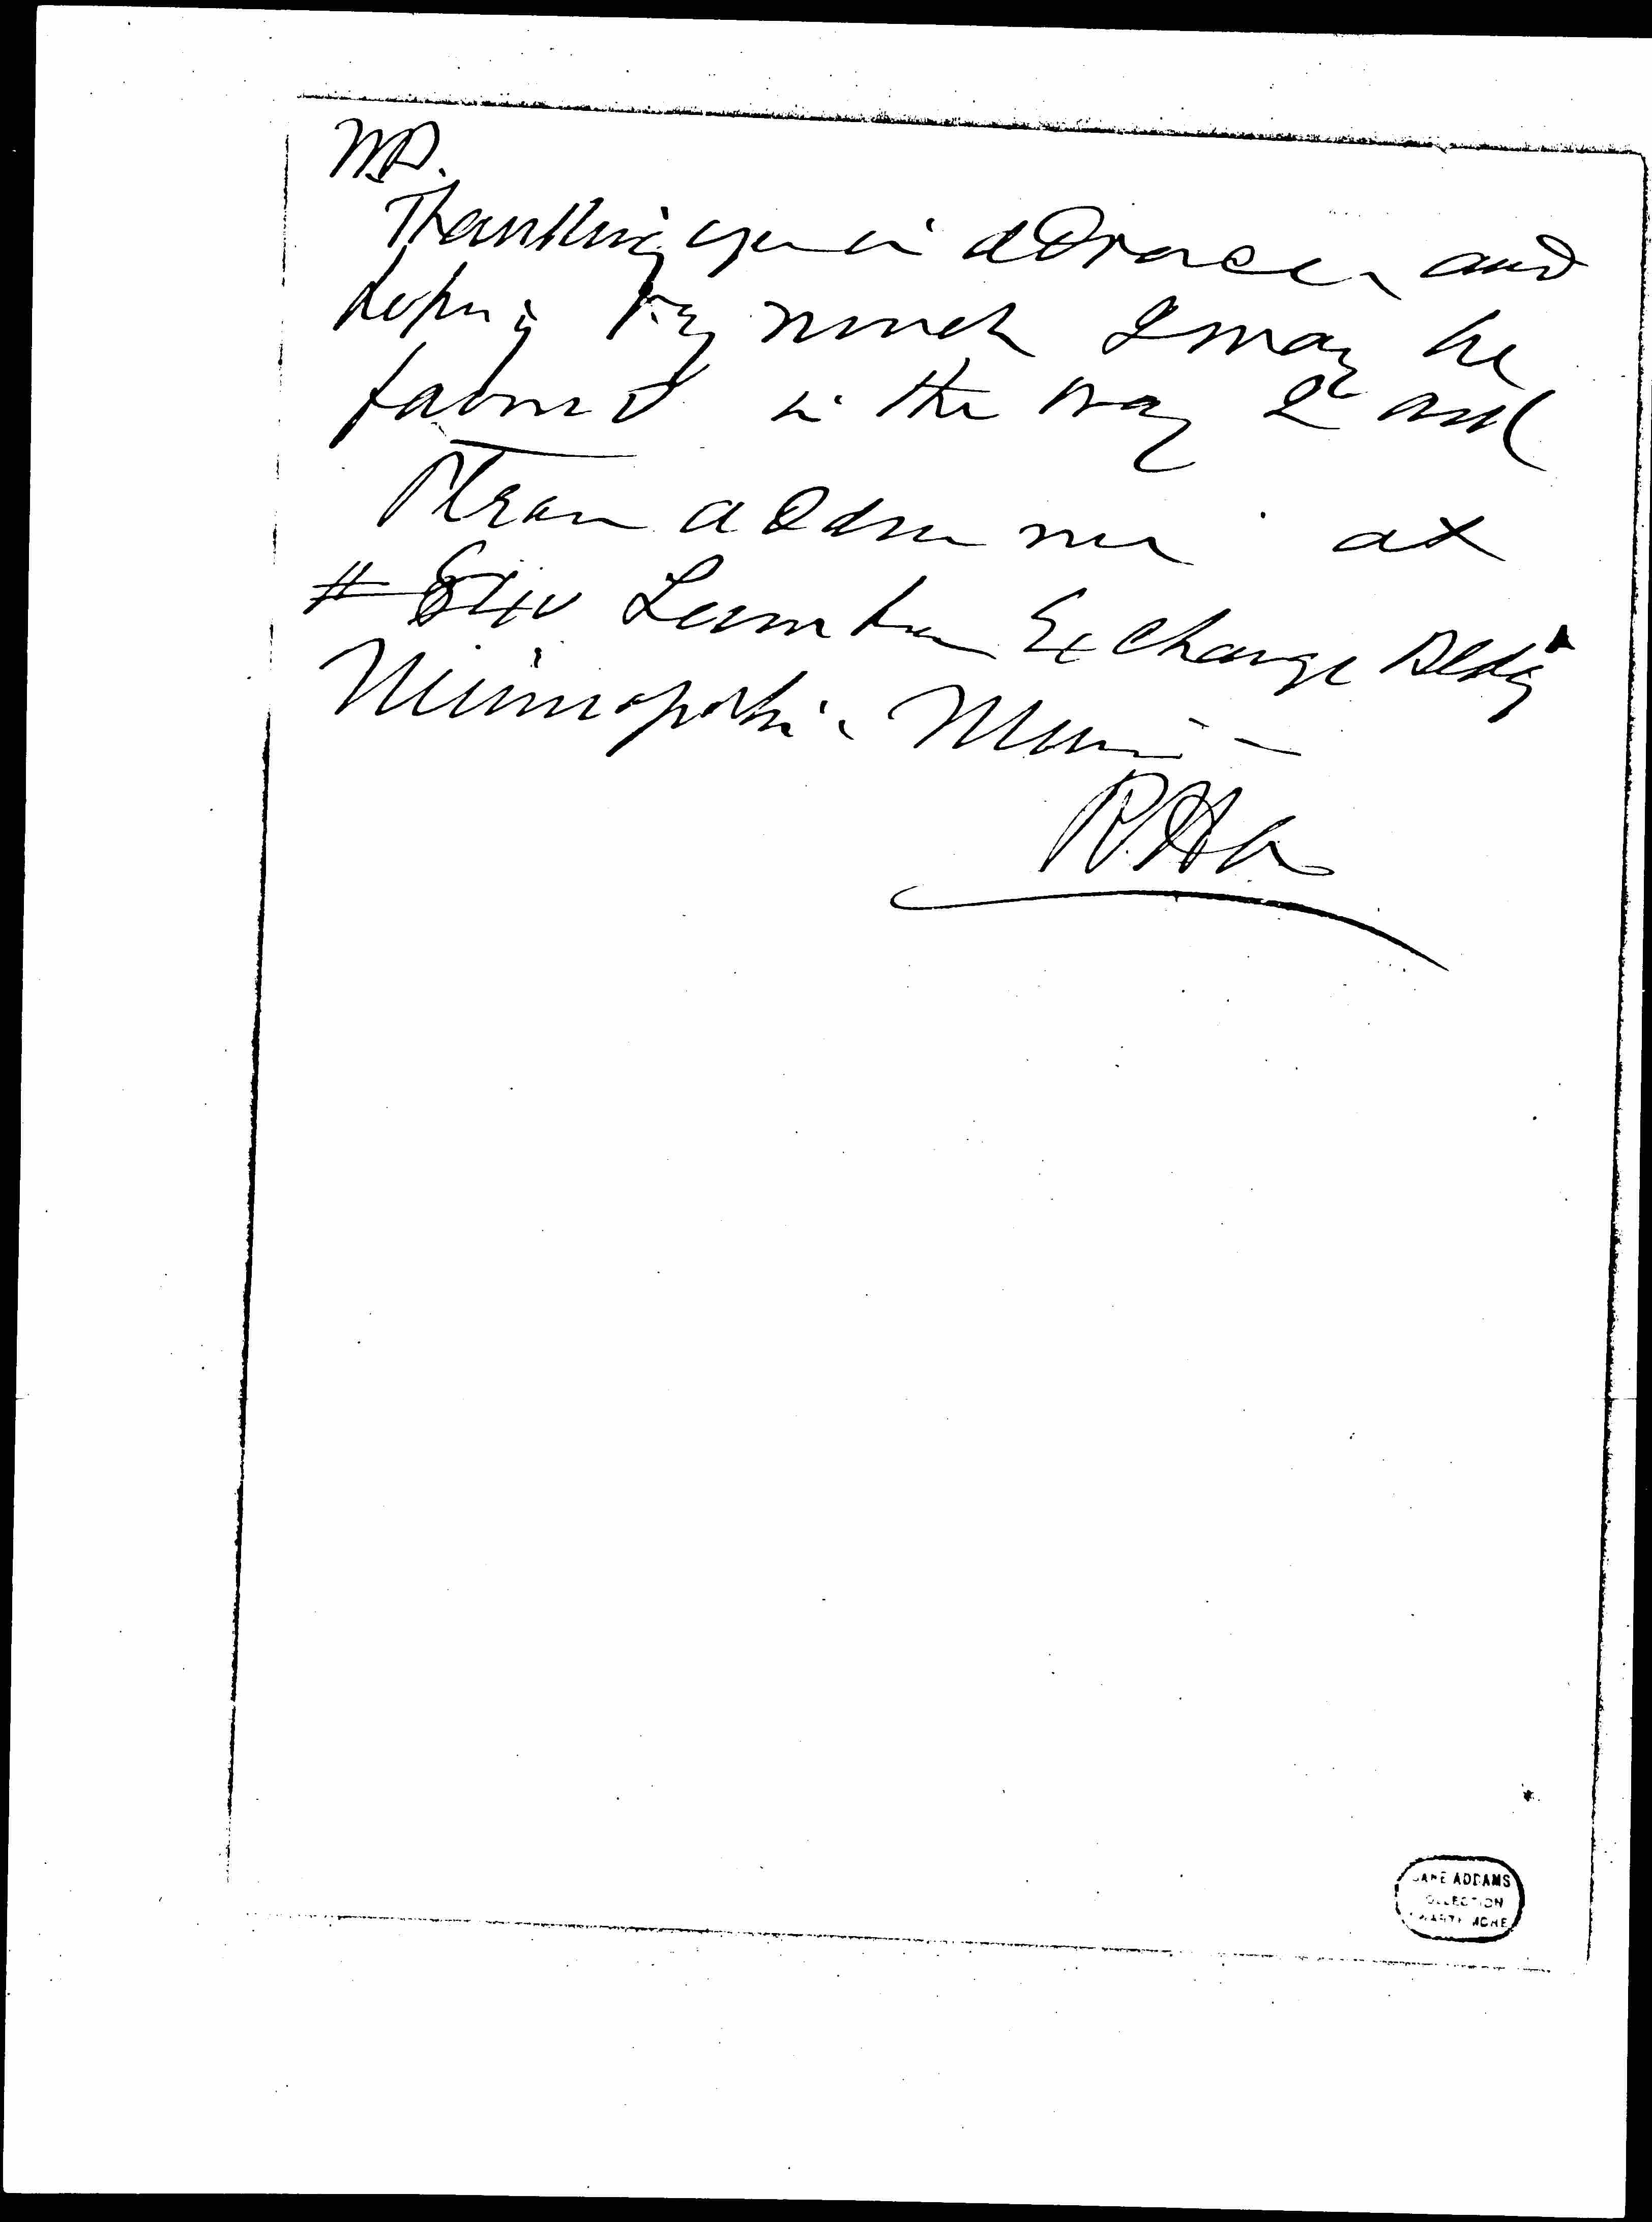 Thanking you in advance and
hoping very much I may be
favored in the way I ask
Please address me at
# Lumber Exchange Bldg
Minneapolis Minn -
JANE ADDAMS
COLLECTION
SWARTHMORE